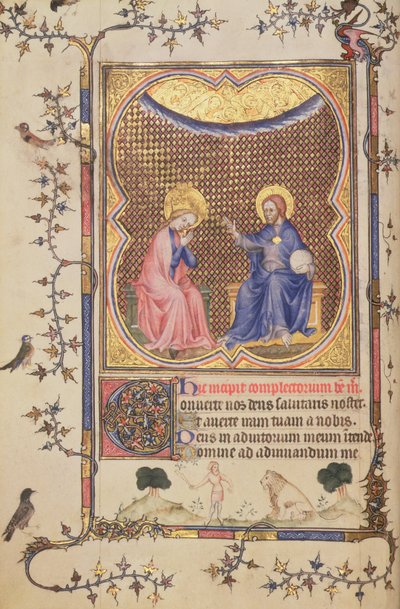 Hic incipit complectorium be m
Conuerte nos deus salutaris noster
Et auerte iram tuam a nobis.
Deus in adiutorium meum itende
Domine ad adiuuandum me